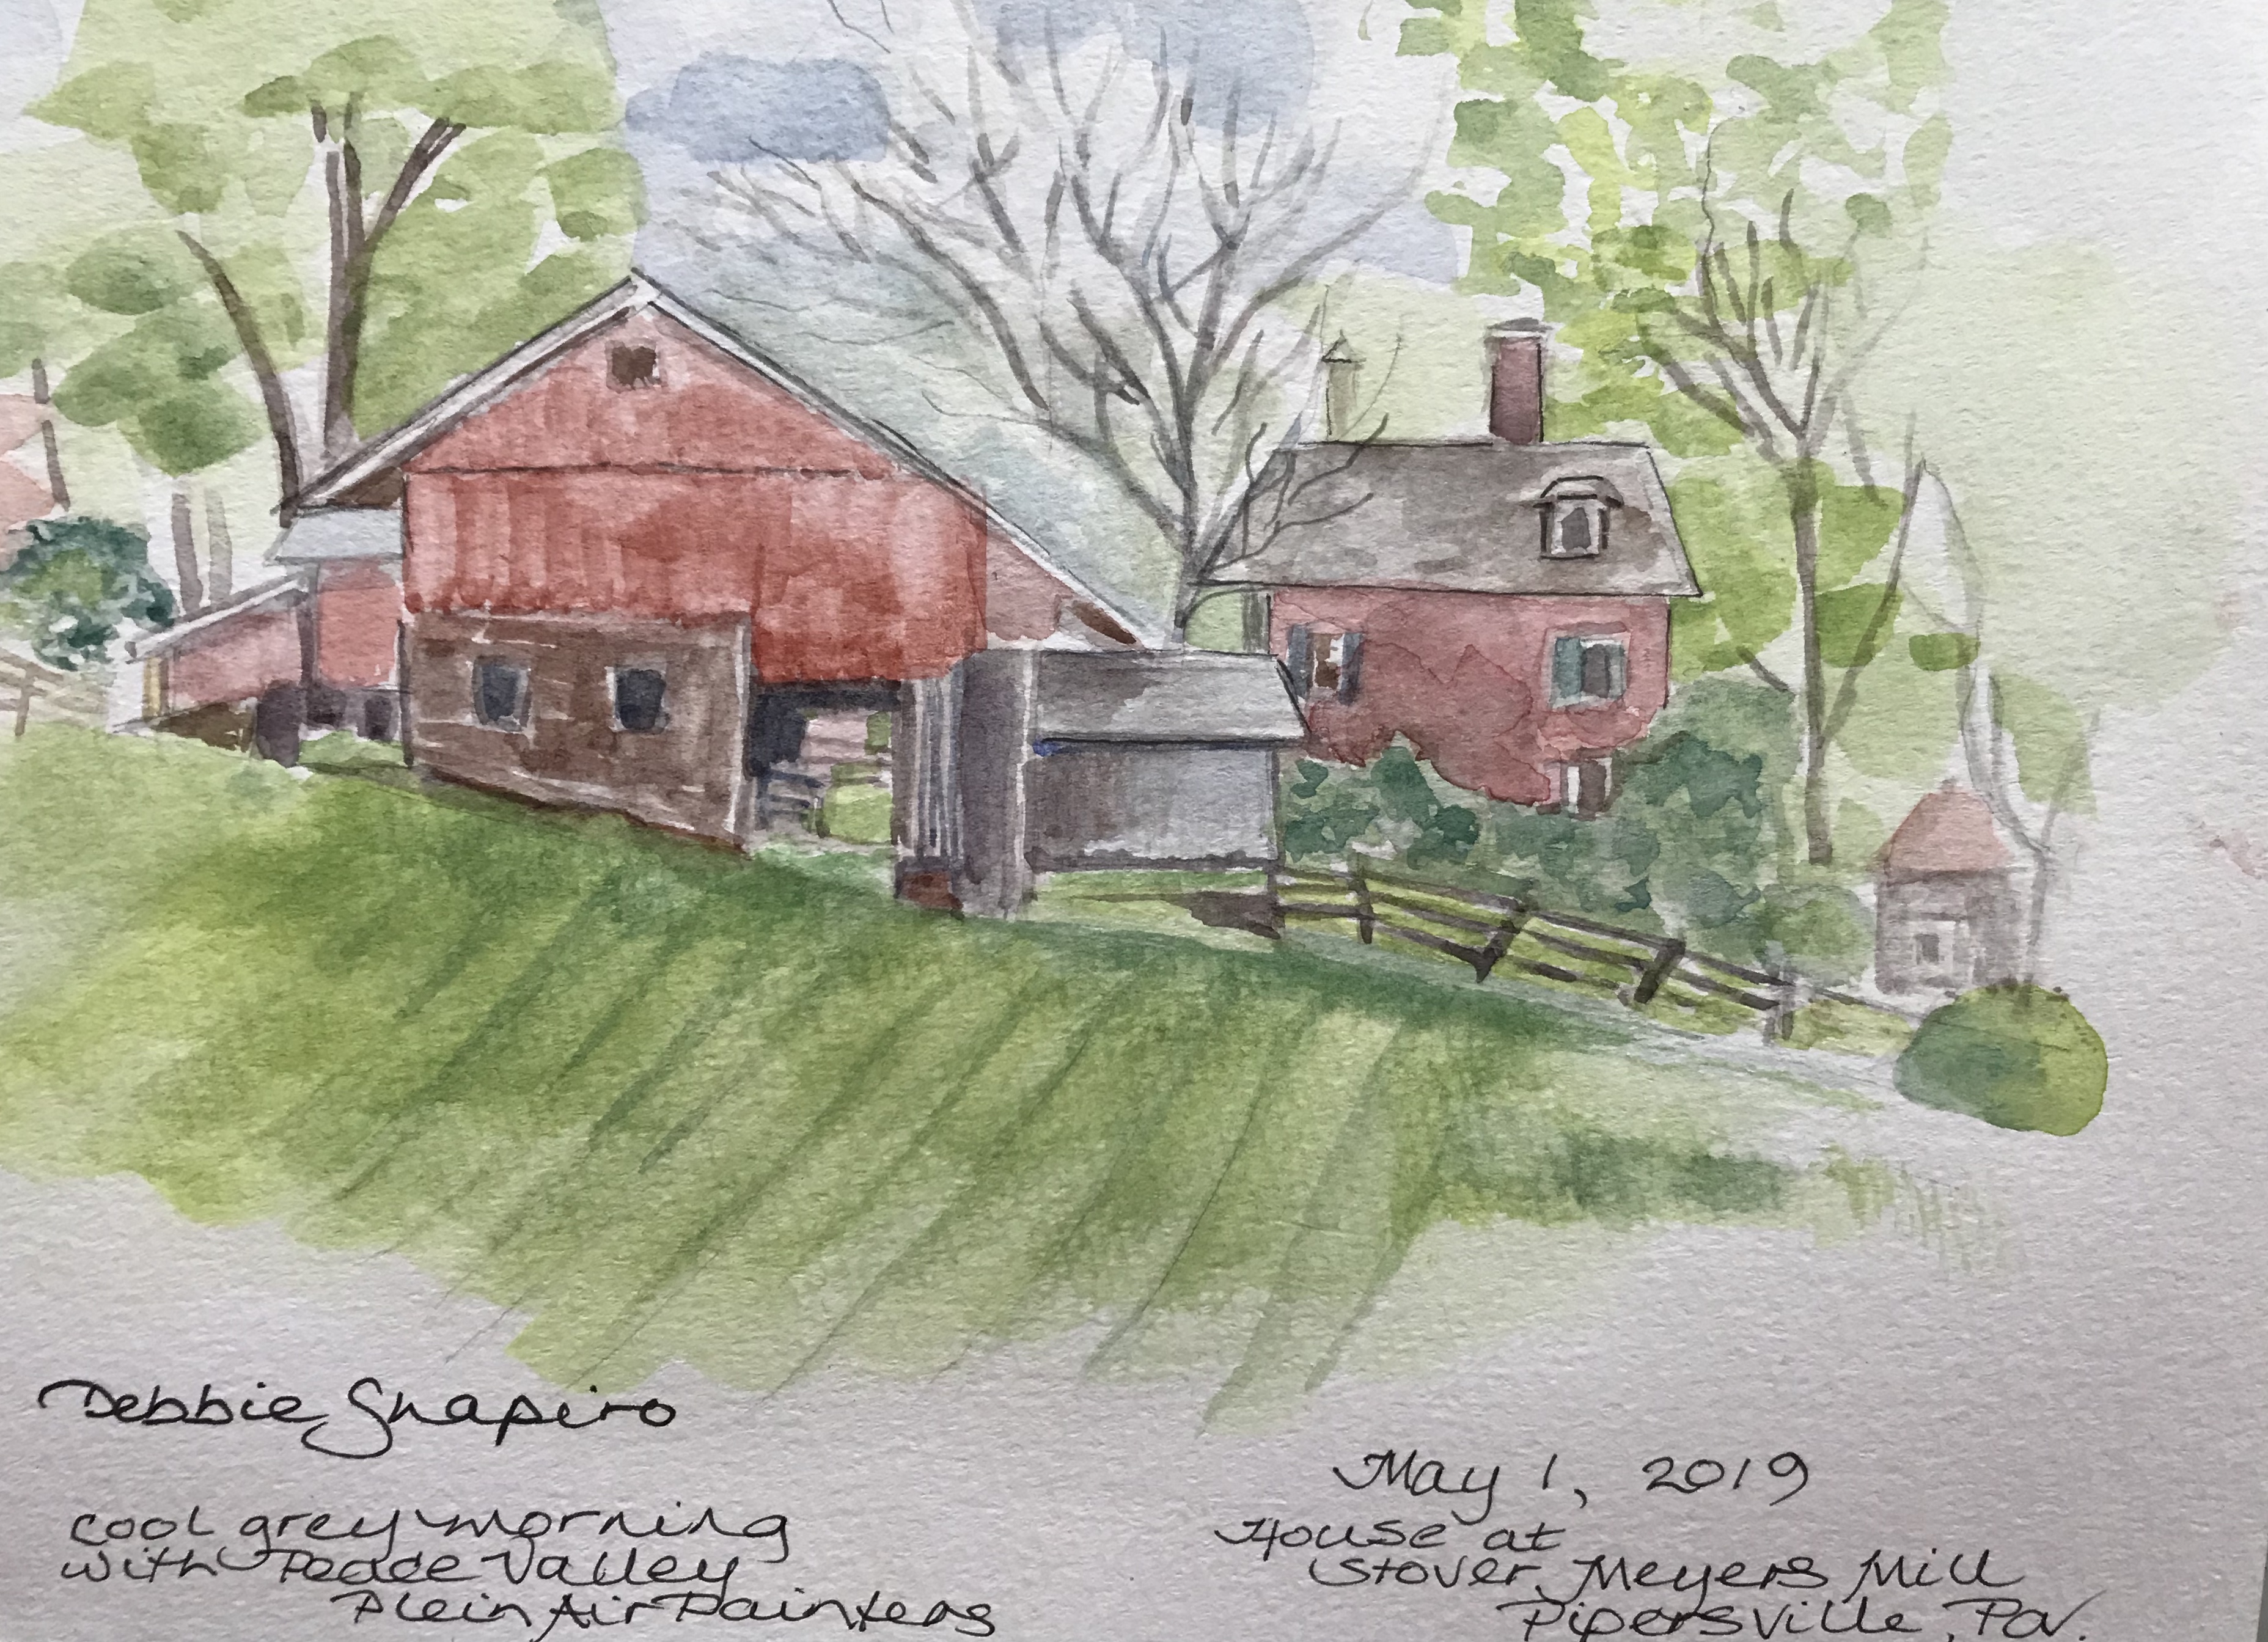 Debbie Shapiro
cool grey morning
with Peace Valley
Plein Air Painters
May 1, 2019
House at
Stover Meyers Mill
Pipersville, Pa.